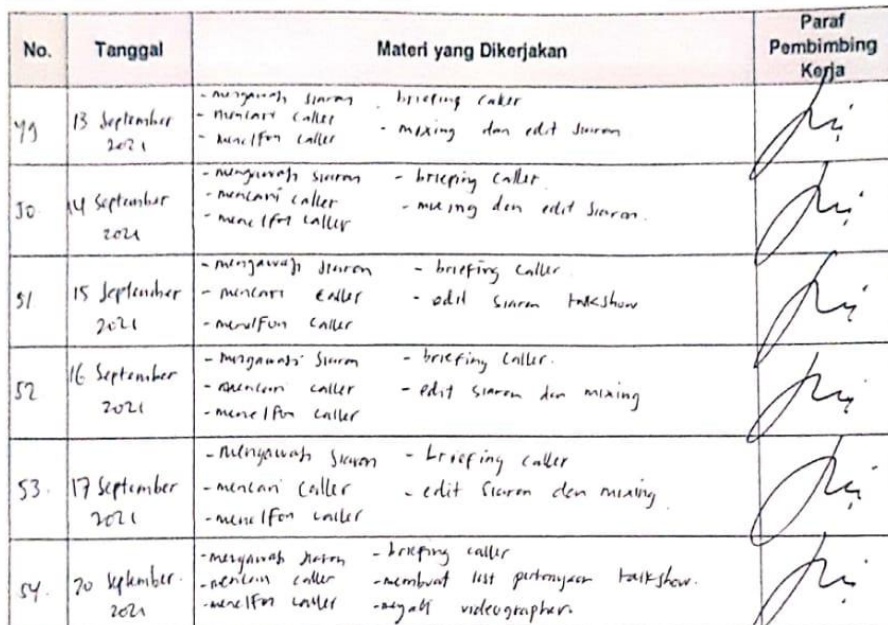 No. Tanggal Materi yang Dikerjakan Paraf Pembimbing Kerja
49 13 September 2021
- mengawasi siaran - briefing caller
- mencari caller - mixing dan edit siaran
- menelfon caller
50. 14 September 2021
- mengawasi siaran - briefing caller.
- mencari caller - mixing dan edit siaran.
- menelfon caller
51 15 September 2021
- mengawasi siaran - briefing caller.
- mencari caller - edit siaran talkshow
- menelfon caller
52 16 September 2021
- mengawasi siaran - briefing caller.
- mencari caller - edit siaran dan mixing
- menelfon caller
53. 17 September 2021
- mengawasi siaran - briefing caller
- mencari caller - edit siaran dan mixing
- menelfon caller
54. 20 September. 2021
- mengawasi siaran - briefing caller
- mencari caller - membuat list pertanyaan talkshow.
- menelfon caller - videographer.